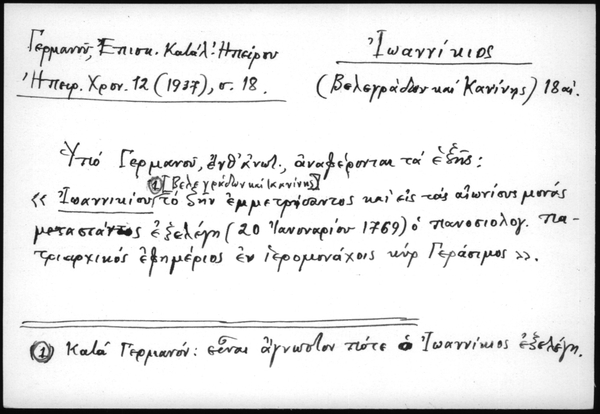 Γερμανοῦ, Ἐπισκ. Κατάλ. Ἠπείρου
Ἠπειρ. Χρον. 12 (1937), σ. 18.
Ἰωαννίκιος
(Βελεγράδων καὶ Κανίνης) 18 αἰ.
Ὑπό Γερμανοῦ, ἔνθ' ἀνωτ., ἀναφέρονται τά ἑξῆς:
① [Βελεγράδων καὶ Κανίνης]
« Ἰωαννικίου τό ζῆν ἐμμετρήσαντος καὶ εἰς τάς αἰωνίους μονάς
μεταστάντος ἐξελέγη (20 Ἰανουαρίου 1769) ὁ πανοσιολογ. πα-
τριαρχικός ἐφημέριος ἐν ἱερομονάχοις κύρ Γεράσιμος ».
① Κατά Γερμανόν: εἶναι ἄγνωστον πότε ὁ Ἰωαννίκιος ἐξελέγη.